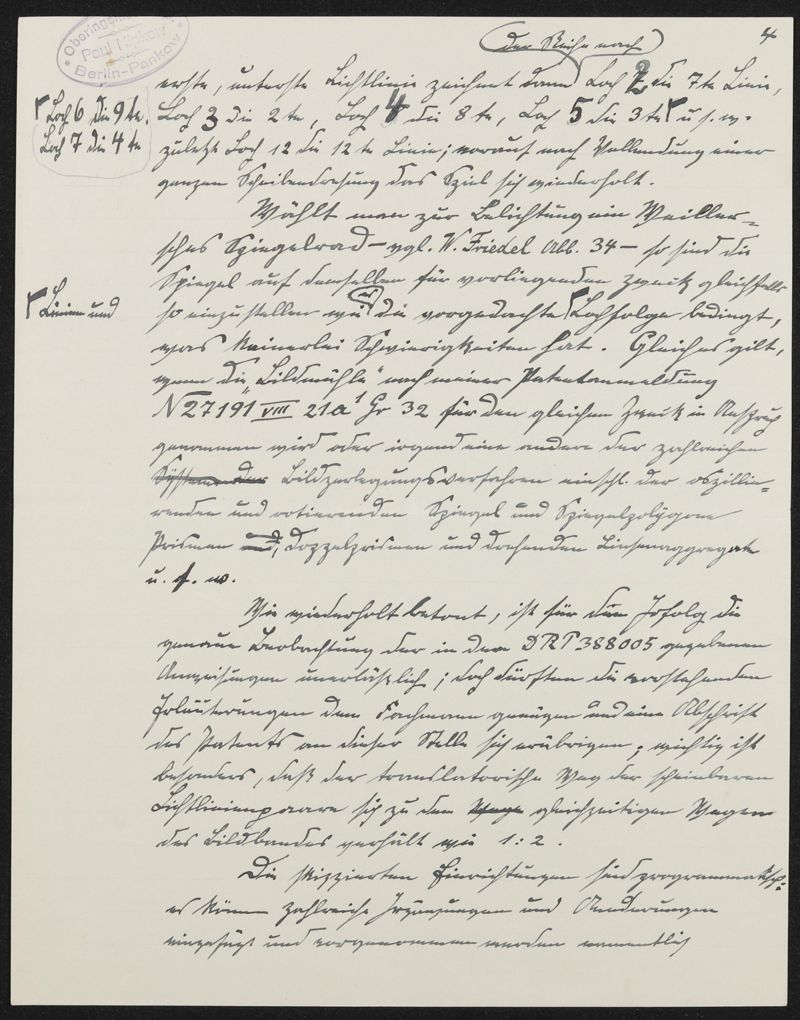 Oberingenieur
Paul Nipkow
Berlin-Pankow
4
der Reihe nach
erste, unterste Lichtlinie zeichnet dann Loch 2 die 7te Linie,
Loch 6 die 9te,
Loch 7 die 4te
Loch 3 die 2te, Loch 4 die 8te, Loch 5 die 3te u.s.w.
zuletzt Loch 12 die 12te Linie; worauf nach Vollendung einer
ganzen Scheibendrehung das Spiel sich wiederholt.
Wählt man zur Belichtung ein Weiller=
sches Spiegelrad – vgl. W. Friedel Abb. 34 – so sind die
Spiegel auf demselben für vorliegenden Zweck gleichfalls
Linien und
so einzustellen wie es die vorgedachte Lochfolge bedingt,
was keinerlei Schwierigkeiten hat. Gleiches gilt,
wenn die „Bildmühle" nach meiner Patentanmeldung
N 27191 VIII 21a¹ Gr 32 für den gleichen Zweck in Anspruch
genommen wird oder irgend eine andere der zahlreichen
Systeme der Bildzerlegungsverfahren einschl. der oszillie=
renden und rotierenden Spiegel und Spiegelpolygone
Prismen, Doppelprismen und drehenden Linsenaggregate
u. s. w.
Wie wiederholt betont, ist für den Erfolg die
genaue Beobachtung der in dem DRP 388005 gegebenen
Anweisungen unerläßlich; doch dürften die vorstehenden
Erläuterungen dem Fachmann genügen und eine Abschrift
des Patents an dieser Stelle sich erübrigen; wichtig ist
besonders, daß der translatorische Weg der scheinbaren
Lichtlinienpaare sich zu dem Wege gleichzeitigen Wegen
des Bildbandes verhält wie 1:2.
Die skizzierten Einrichtungen sind programmatisch:
es können zahlreiche Ergänzungen und Aenderungen
eingefügt und vorgenommen werden namentlich